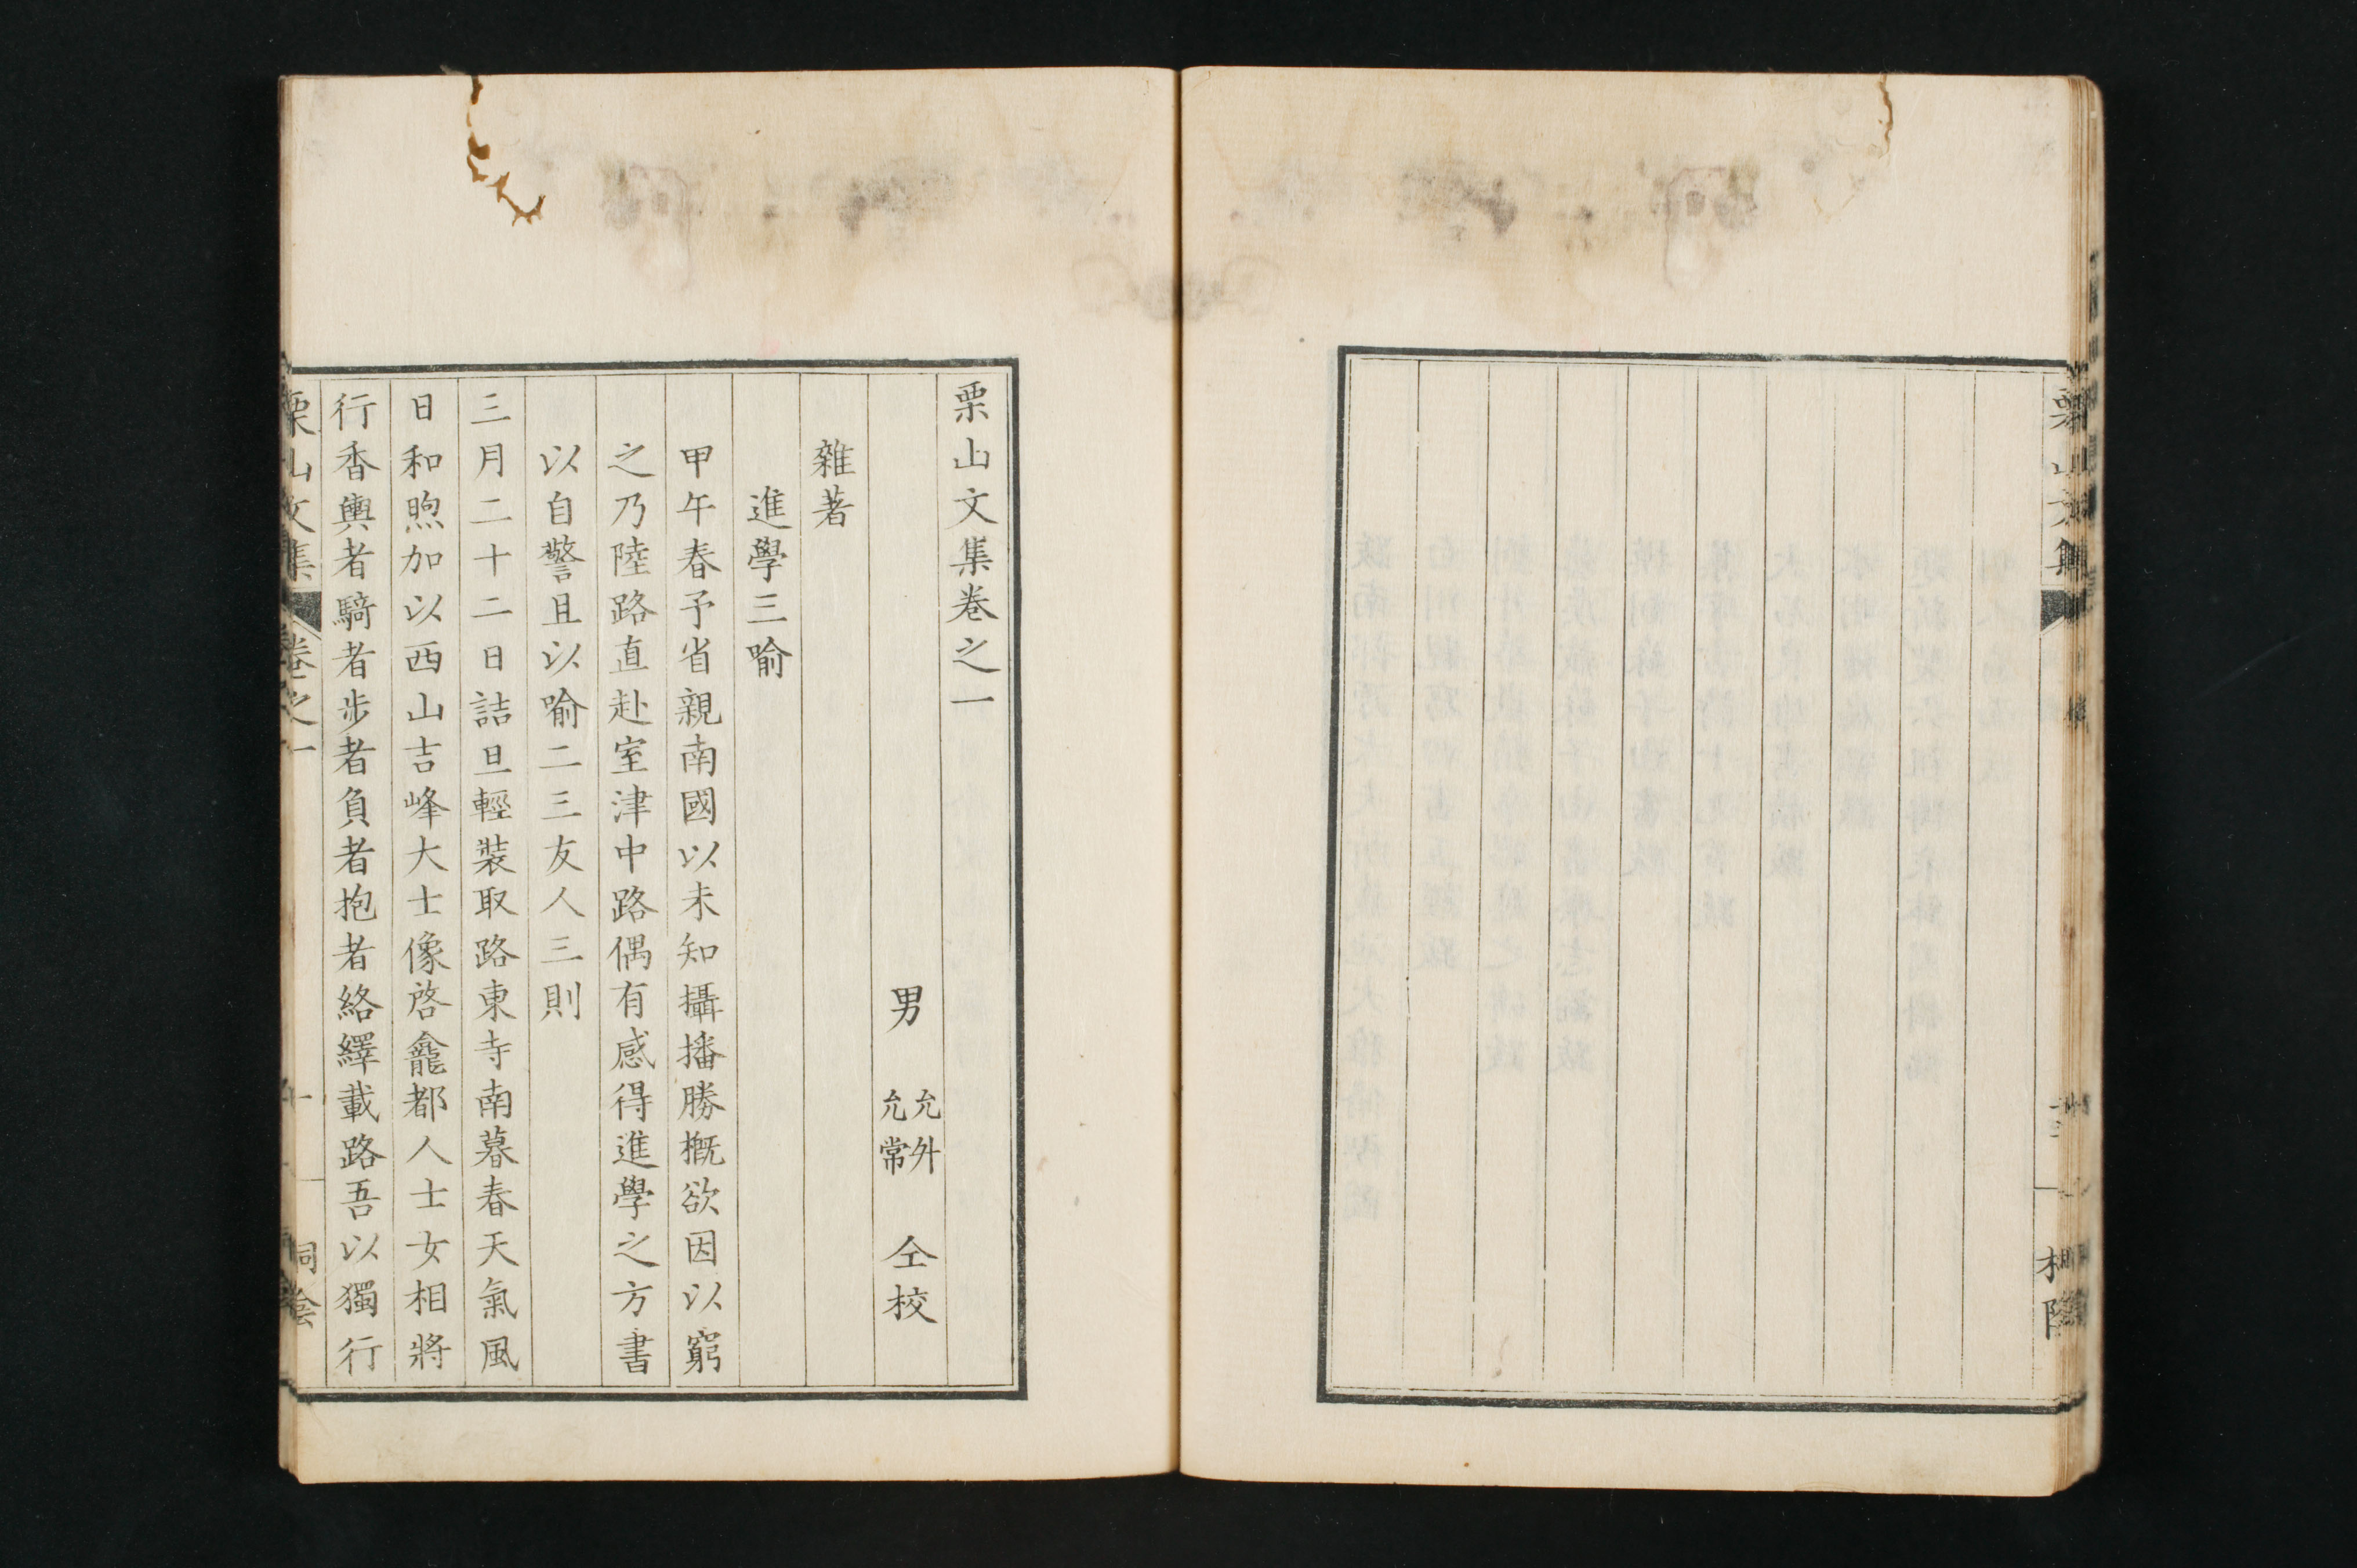 栗山文集卷之一
男 允外 允常 仝校
雜著
進學三喻
甲午春予省親南國以未知攝播勝概欲因以窮
之乃陸路直赴室津中路偶有感得進學之方書
以自警且以喻二三友人三則
三月二十二日詰旦輕裝取路東寺南暮春天氣風
日和煦加以西山吉峰大士像啓龕都人士女相將
行香輿者騎者步者負者抱者絡繹載路吾以獨行
栗山文集 卷之一 一